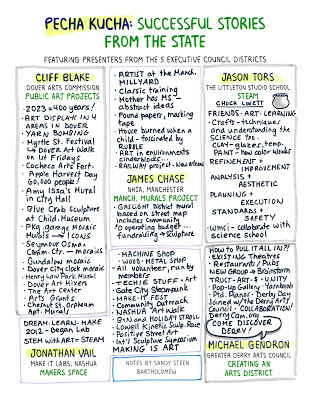 PECHA KUCHA: SUCCESSFUL STORIES
FROM THE STATE
FEATURING PRESENTERS FROM THE 5 EXECUTIVE COUNCIL DISTRICTS
CLIFF BLAKE
DOVER ARTS COMMISSION
PUBLIC ART PROJECTS
• 2023 = 400 years!
• ART DISPLAY IN 2
AREAS IN DOVER
• YARN BOMBING
• Myrtle St. Festival
↳ Dover Art Walk
on 1st Fridays
• Cocheco Arts Fest.
• Apple Harvest Day
60,000 people!
• Amy Issa's Mural
in City Hall
• Blue Crab Sculpture
at Child. Museum
• Pkg. garage Mosaic
Murals — ICONS
• Seymour Osman
Comm. Ctr. — Mosaics
• Gundalow mosaic
• Dover City clock mosaic
• Henry Law Park Mural
• Dover Art Mixers
• The Art Center
• Arts Grants
• Chapel St. Orpheum
Apt. Murals
DREAM. LEARN. MAKE
2012 - began Lab
STEM with ART = STEAM
JONATHAN VAIL
MAKE IT LABS, NASHUA
MAKERS SPACE
• ARTIST at the Manch.
MILLYARD
• Classic training
• Mother has MS —
abstract ideas
• Found papers, marking
tape
• House burned when a
child - fascinated by
RUBBLE
• ART in environments
cinderworks...
• RAILWAY project
JAMES CHASE
NHIA, MANCHESTER
MANCH. MURALS PROJECT
• GASLIGHT District mural
based on street map
includes community
• 0 operating budget...
fundraising → Sculpture
• MACHINE SHOP
• WOOD • METAL SHOP
• All volunteer, run by
members
• TECHIE STUFF • Art
• Gate City Steampunk
• MAKE-IT FEST
• Community Outreach
• NASHUA ART WALK
• BYN and HOLIDAY STROLL
• Lowell Kinetic Sculp. Race
• Positive Street Art
• Int'l Sculpture Symposium
MAKING IS ART
NOTES BY SANDY STEEN
BARTHOLOMEW
JASON TORS
THE LITTLETON STUDIO SCHOOL
STEAM
CHUCK LOVETT
FRIENDS • ART • LEARNING
• Crafts - techniques
and understanding the
SCIENCE too.
• CLAY - glazes, temp.
• PAINT - how color works
REFINEMENT +
IMPROVEMENT
ANALYSIS +
AESTHETIC
PLANNING +
EXECUTION
STANDARDS +
SAFETY
• WMSI - collaborate with
science school
HOW TO PULL IT ALL IN?!
• EXISTING Theatres
• Restaurants / Pubs
• NEW GROUP → Brainstorm
• TRUST • ART • UNITY
• Pop-Up Gallery • Yarnbomb
• Ptd. Pianos • Derby Day
Joined w/the Derry Arts
Council • COLLABORATION!
COME DISCOVER
DERRY!
MICHAEL GENDRON
GREATER DERRY ARTS COUNCIL
CREATING AN
ARTS DISTRICT